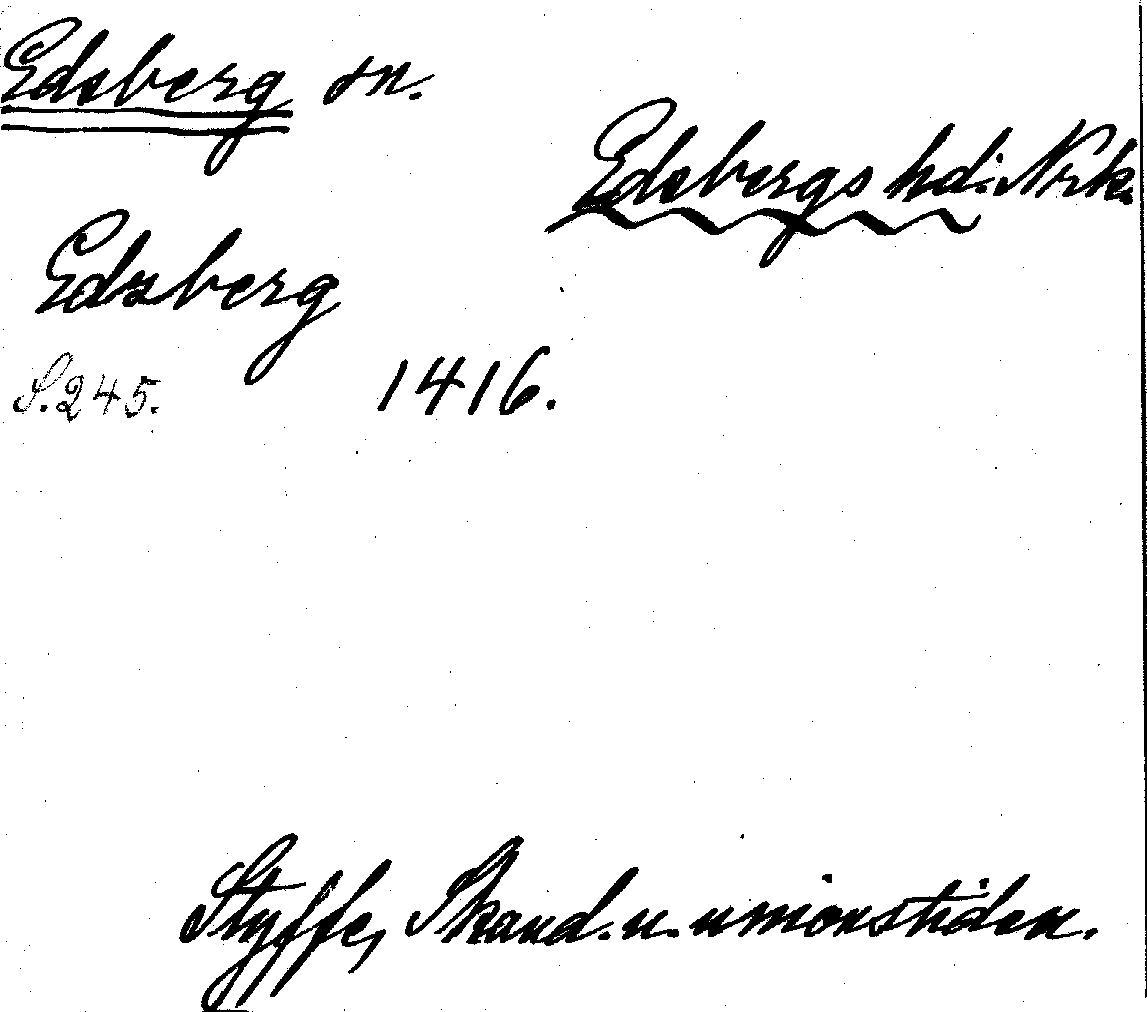 Edsberg sn.
Edsbergs hd. Nrk.
Edzberg
S. 245. 1416.
Styffe, Skand. u. unionstiden.